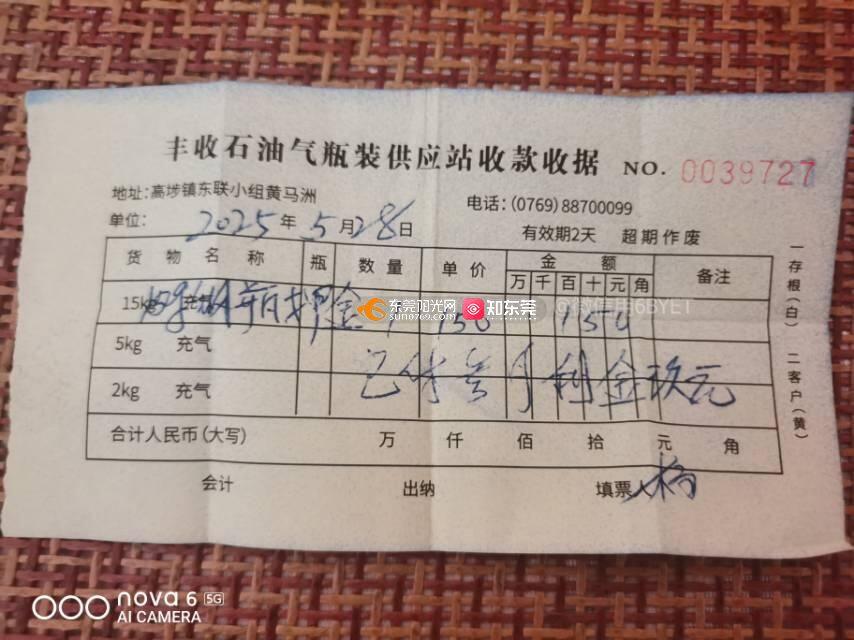 丰收石油气瓶装供应站收款收据 NO. 0039727
地址:高埗镇东联小组黄马洲 电话:(0769)88700099
单位: 2025年5月28日 有效期2天 超期作废
货物名称 瓶 数量 单价 金额 备注
万 千 百 十 元 角
15kg 充气 押金 1 150 150
5kg 充气
2kg 充气 月利金玖元
合计人民币(大写) 万 仟 佰 拾 元 角
会计 出纳 填票人
一存根(白) 二客户(黄)
东莞阳光网 sun0769.com 知东莞
nova 6 5G
AI CAMERA